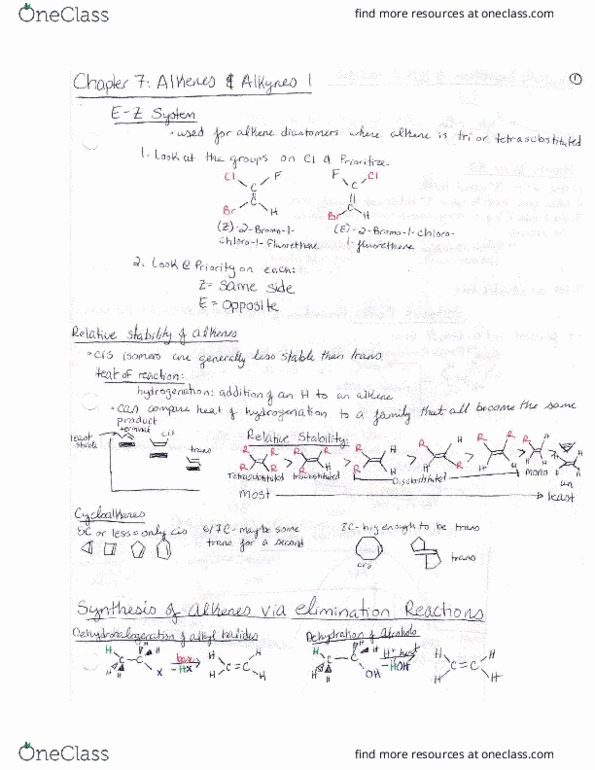 OneClass
find more resources at oneclass.com
Chapter 7: Alkenes & Alkynes 1
1
E-Z System
• used for alkene diastomers where alkene is tri or tetrasubstituted
1. Look at the groups on C1 & Prioritize
Cl F F Cl
C C
C C
Br H Br H
(Z)-2-Bromo-1- (E)-2-Bromo-1-chloro-
chloro-1-fluorethene 1-fluorethene
2. Look @ Priority on each:
Z= same side
E= opposite
Relative stability of alkenes
• cis isomers are generally less stable than trans
heat of reaction:
hydrogenation: addition of an H to an alkene
• can compare heat of hydrogenation to a family that all become the same
product
least stable
terminal
cis
trans
Relative Stability:
R R R H R H R H R R R H H H
Tetrasubstituted > trisubstituted > Disubstituted > mono > un
most least
Cycloalkenes
5C or less = only cis 6/7C - maybe some 8C - big enough to be trans
trans for a second
cis
trans
Synthesis of Alkenes via elimination Reactions
Dehydrohalogenation of alkyl halides Dehydration of Alcohols
H C C H H X base -HX H C=C H H H
H C C H H OH H+ heat -HOH H C=C H H H
OneClass
find more resources at oneclass.com